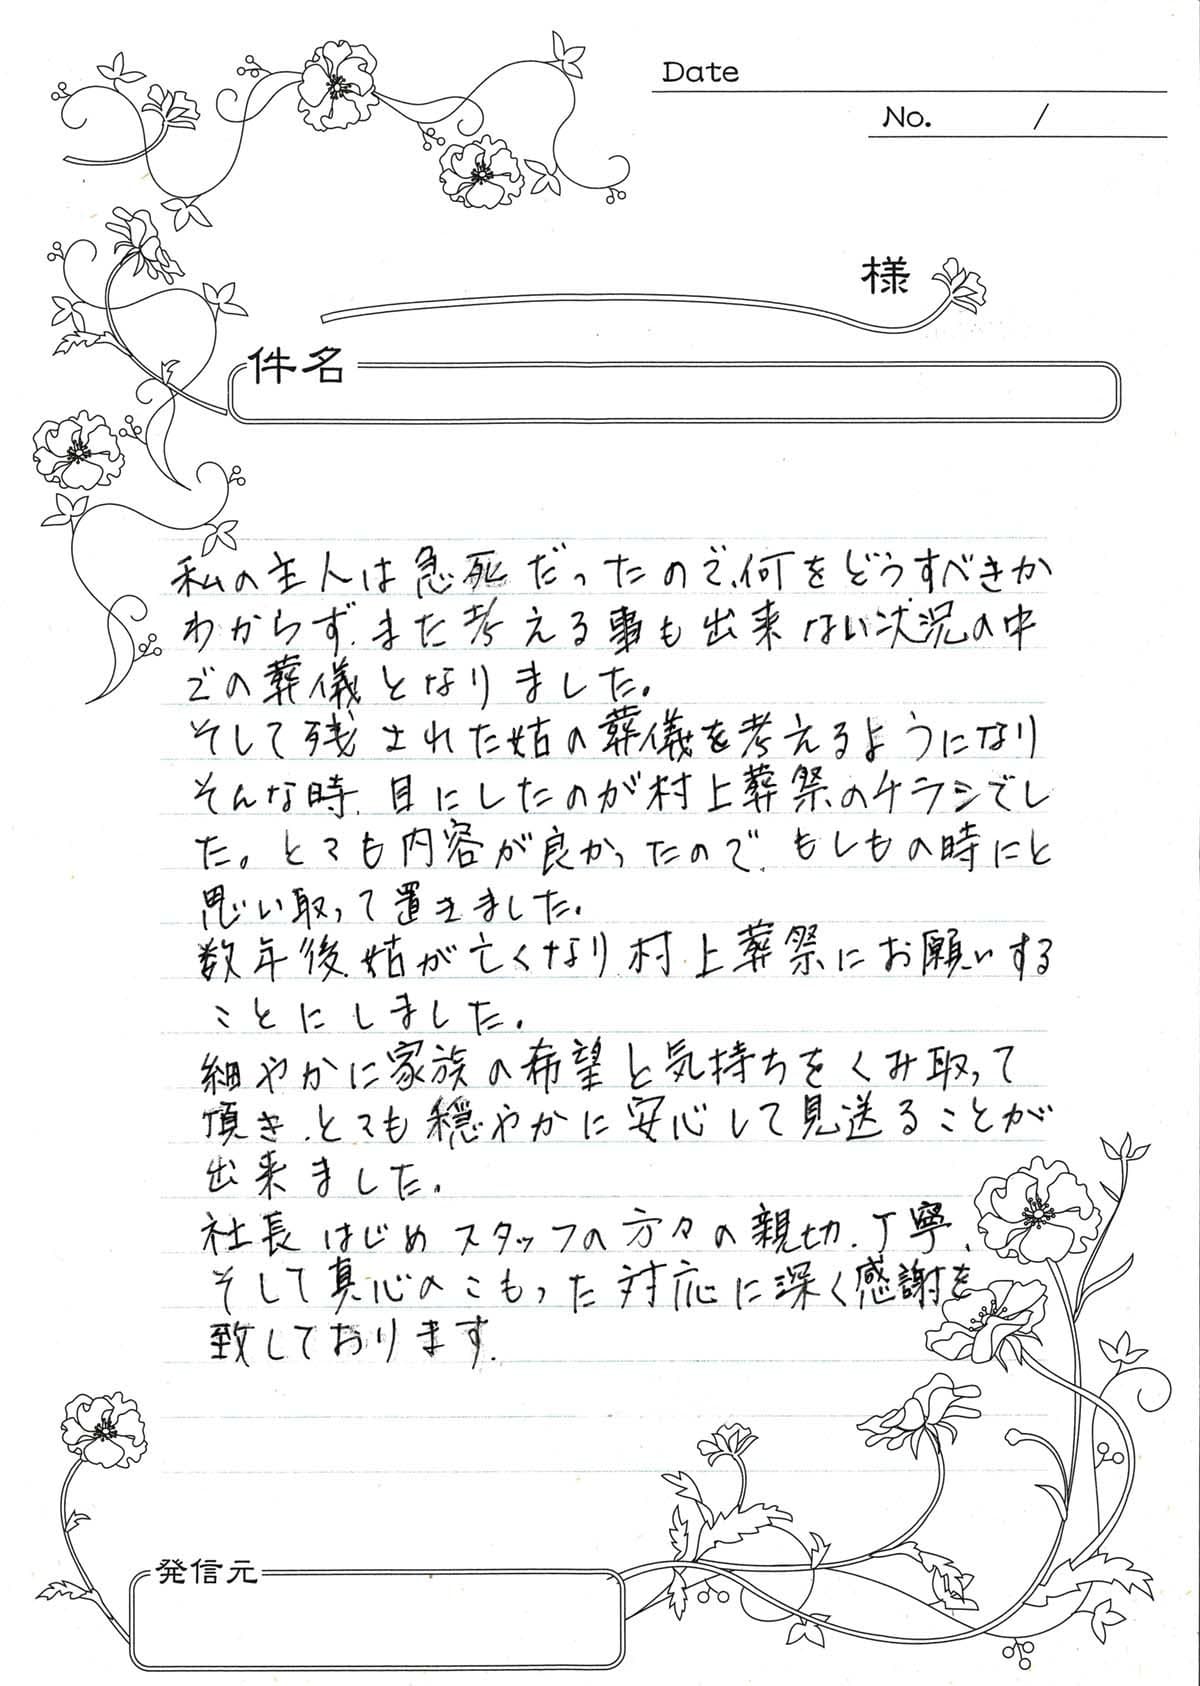 Date
No. /
様
件名
私の主人は急死だったので、何をどうすべきか
わからず、また考える事も出来ない状況の中
での葬儀となりました。
そして残された姑の葬儀を考えるようになり
そんな時、目にしたのが村上葬祭のチラシでし
た。とても内容が良かったので、もしもの時にと
思い取って置きました。
数年後、姑が亡くなり、村上葬祭にお願いする
ことにしました。
細やかに家族の希望と気持ちをくみ取って
頂き、とても穏やかに安心して見送ることが
出来ました。
社長はじめスタッフの方々の親切、丁寧、
そして真心のこもった対応に深く感謝を
致しております。
発信元